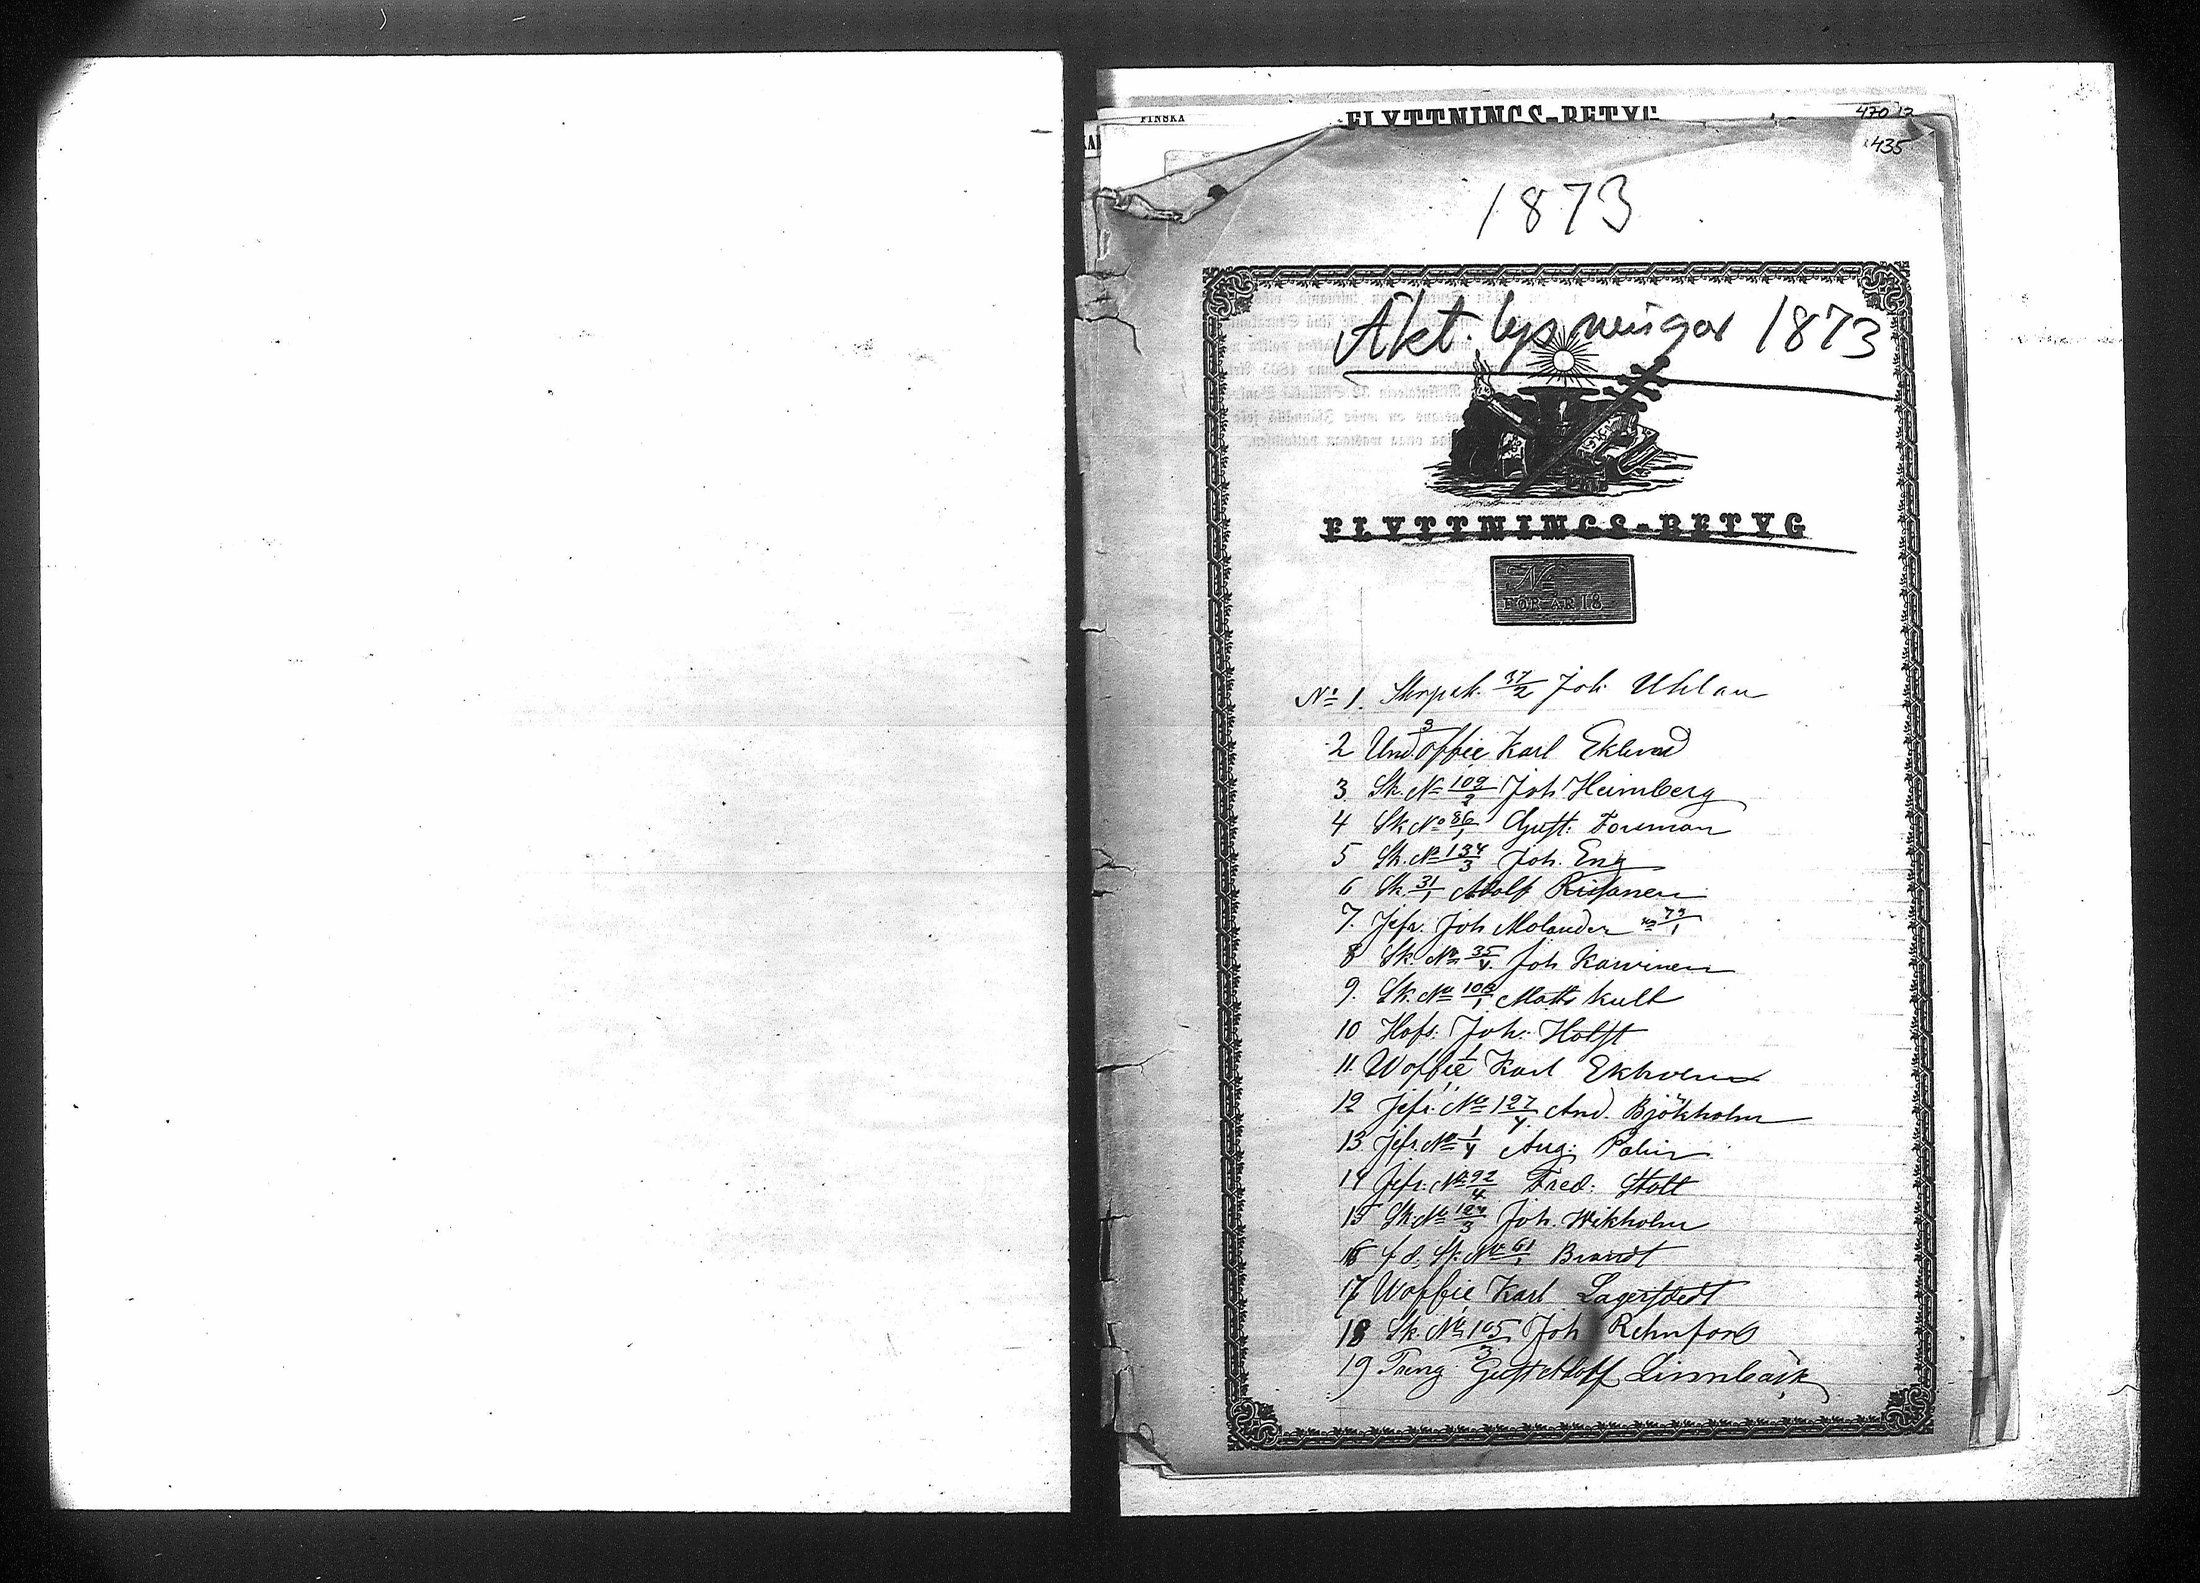 FINSKA
FLYTTNINGS-BETYG
470 12
435
1873
Akt. lysningar 1873
FLYTTNINGS-BETYG
No
FÖR ÅR 18
No 1. 37/2 Joh Uhlau
2 Und.offic 3 Karl Eklund
3 Sk. No 109/2 Joh Heimberg
4 Sk No 86/1 Gust. Forsman
5 Sk. No 134/3 Joh. Eng
6 Sk. 31/1 Adolf Rissanen
7. Jefr. Joh Molander No 73/1
8 Sk. No 35/4 Joh Karvinen
9. Sk. No 108/1 Matts Kult
10 Hofs. Joh. Holst
11 Uoffic 1/1 Karl Ekholm
12 Jefr. No 127/4 And. Björkholm
13 Jefr. No 1/4 Aug. Palin
14 Jefr. No 92/4 Fred. Stolt
15 Sk. No 124/3 Joh. Wikholm
16 f.d. Sk. No 61/1 Brandt
17 Uoffic Karl Lagerstedt
18 Sk. No 105/3 Joh Rehnfors
19 Dreng Gust Adolf Linnbäck